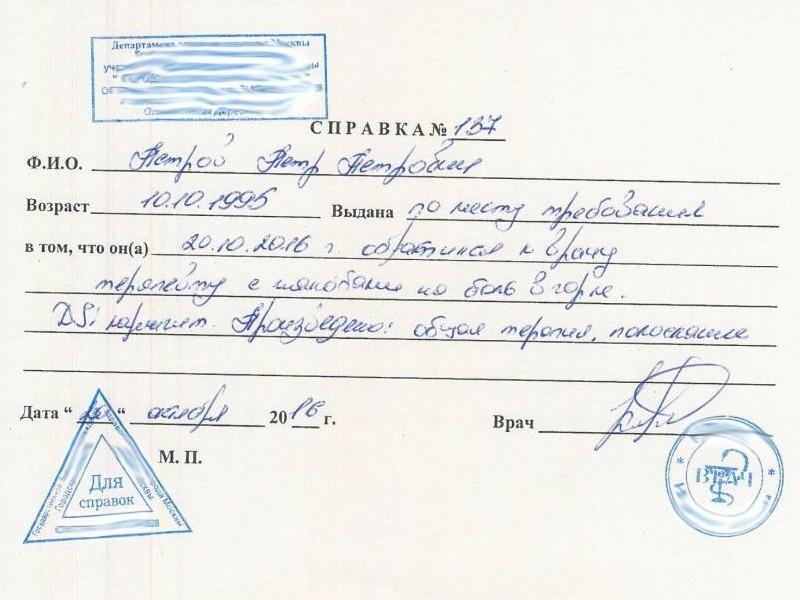 Департамент Москвы
СПРАВКА № 137
Ф.И.О. Петров Петр Петрович
Возраст 10.10.1995 Выдана по месту требования
в том, что он(а) 20.10.2016 г. обратился к врачу
терапевту с жалобами на боль в горле.
DS: ларингит. Произведено: общая терапия, полоскание
Дата “ “ октября 2016 г. Врач
М. П.
Для
справок
ВРАЧ